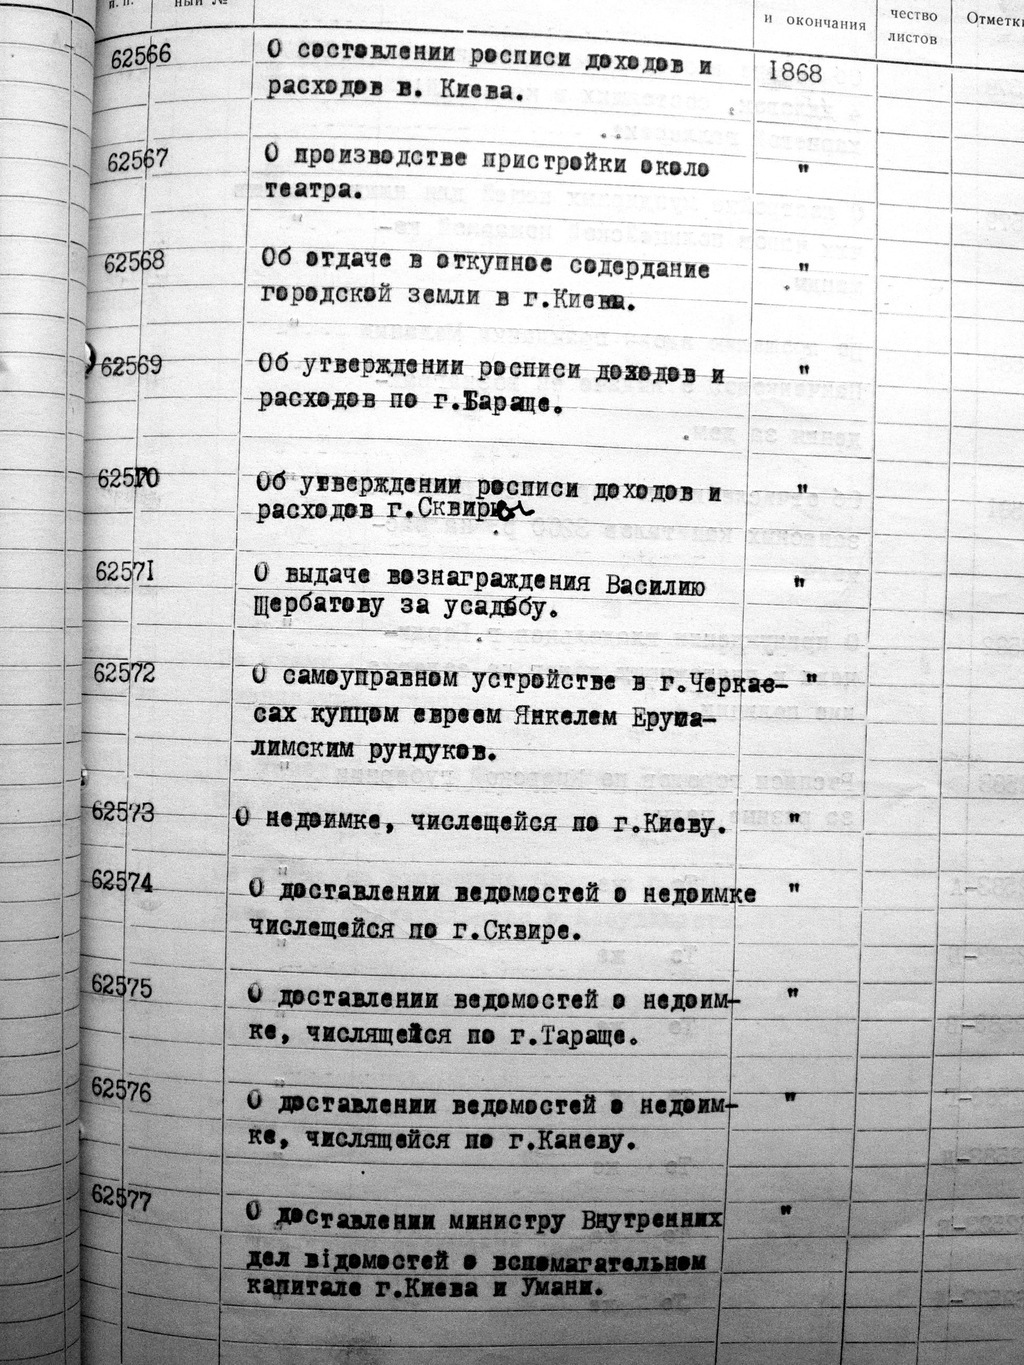 п.п.
ный №
и окончания
чество
листов
Отметки
62566 О составлении росписи доходов и 1868
расходов в. Киева.
62567 О производстве пристройки около "
театра.
62568 Об отдаче в откупное содердание "
городской земли в г.Киева.
62569 Об утверждении росписи доходов и "
расходов по г.Бараще.
62570 Об утверждении росписи доходов и "
расходов г.Сквиры
62571 О выдаче вознаграждения Василию "
Щербатову за усадьбу.
62572 О самоуправном устройстве в г.Черкае- "
сах купцом евреем Янкелем Еруша-
лимским рундуков.
62573 О недоимке, числещейся по г.Киеву. "
62574 О доставлении ведомостей о недоимке "
числещейся по г.Сквире.
62575 О доставлении ведомостей о недоим- "
ке, числящейся по г.Тараще.
62576 О доставлении ведомостей о недоим- "
ке, числящейся по г.Каневу.
62577 О доставлении министру Внутренних "
дел відомостей о вспомагательном
капитале г.Киева и Умани.